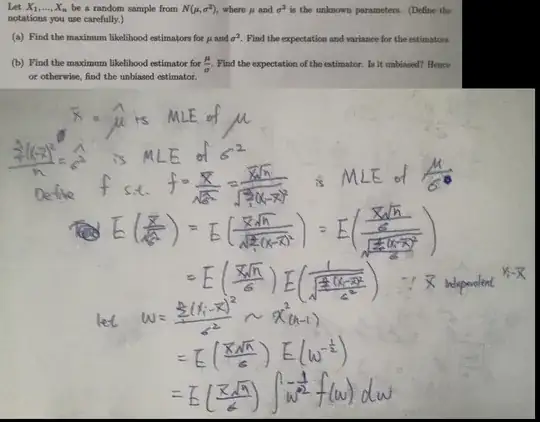 Let X₁, ..., Xₙ be a random sample from N(μ, σ²), where μ and σ² is the unknown parameters. (Define the
notations you use carefully.)
(a) Find the maximum likelihood estimators for μ and σ². Find the expectation and variance for the estimators.
(b) Find the maximum likelihood estimator for μ/σ. Find the expectation of the estimator. Is it unbiased? Hence
or otherwise, find the unbiased estimator.
X̄ = μ̂ is MLE of μ
Σ(Xᵢ-X̄)²/n = σ̂² is MLE of σ²
Define f s.t. f = X̄/√σ̂² = X̄√n/√(Σ(Xᵢ-X̄)²) is MLE of μ/σ
E(X̄/√σ̂²) = E(X̄√n/√(Σ(Xᵢ-X̄)²)) = E((X̄√n/σ)/√(Σ(Xᵢ-X̄)²/σ²))
= E(X̄√n/σ) E(1/√(Σ(Xᵢ-X̄)²/σ²)) ∵ X̄ independent Xᵢ-X̄
let w = Σ(Xᵢ-X̄)²/σ² ~ χ²(n-1)
= E(X̄√n/σ) E(w^(-1/2))
= E(X̄√n/σ) ∫ w^(-1/2) f(w) dw